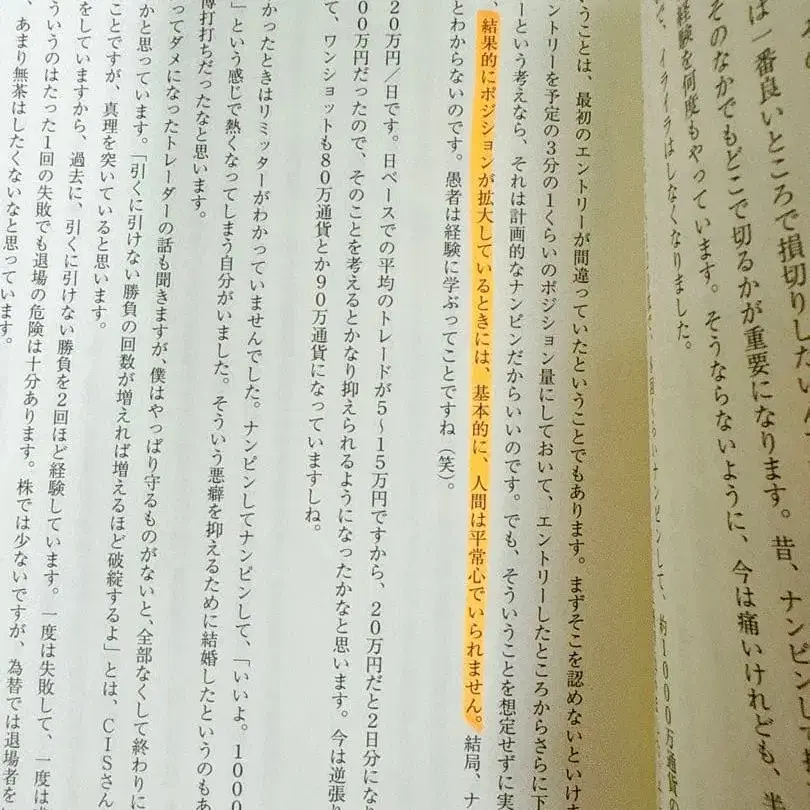 は一番良いところで損切りしたいん
そのなかでもどこで切るかが重要になります。昔、ナンピンして
経験を何度もやっています。そうならないように、今は痛いけれども、半
イライラはしなくなりました。
ナンピンして、約1000万通貨の
うことは、最初のエントリーが間違っていたということでもあります。まずそこを認めないといけま
ントリーを予定の3分の1くらいのポジション量にしておいて、エントリーしたところからさらに下
ーという考えなら、それは計画的なナンピンだからいいのです。でも、そういうことを想定せずに実
、結果的にポジションが拡大しているときには、基本的に、人間は平常心でいられません。結局、ナ
とわからないのです。愚者は経験に学ぶってことですね（笑）。
20万円／日です。日ベースでの平均のトレードが5〜15万円ですから、20万円だと2日分にな
00万円だったので、そのことを考えるとかなり抑えられるようになったかなと思います。今は逆張
て、ワンショットも80万通貨とか90万通貨になっていますしね。
かったときはリミッターがわかっていませんでした。ナンピンしてナンピンして、「いいよ。1000
」という感じで熱くなってしまう自分がいました。そういう悪癖を抑えるために結婚したというのもあ
博打打ちだったなと思います。
ってダメになったトレーダーの話も聞きますが、僕はやっぱり守るものがないと、全部なくして終わりに
かと思っています。「引くに引けない勝負の回数が増えれば増えるほど破綻するよ」とは、CISさん
ことですが、真理を突いていると思います。
をしていますから、過去に、引くに引けない勝負を2回ほど経験しています。一度は失敗して、一度は
ういうのはたった1回の失敗でも退場の危険は十分あります。株では少ないですが、為替では退場者を
、あまり無茶はしたくないなと思っています。